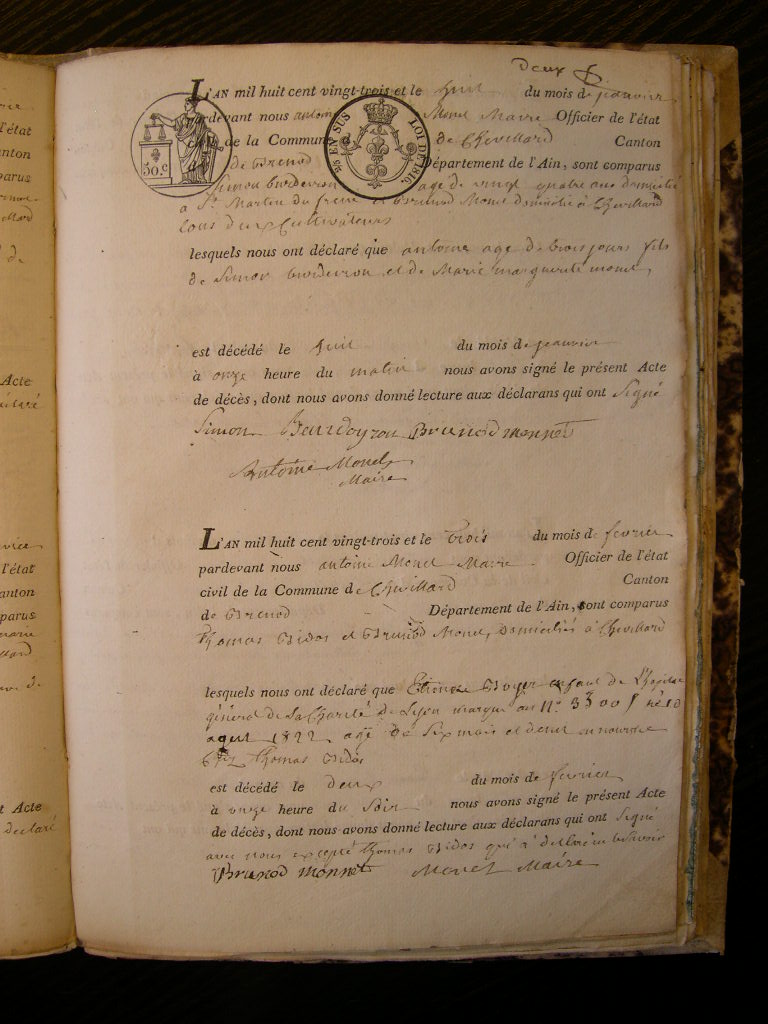 deux
L'AN mil huit cent vingt-trois et le huit du mois de jeanvier
pardevant nous antoine Monel Maire Officier de l'état
civil de la Commune de Chevillard Canton
de Brenod Département de l'Ain, sont comparus
Simon burdeyron age de vingt quatre ans domicilié
à St. Martin du frene et Brunod Monel domicilié à Chevillard
tous deux Cultivateurs
lesquels nous ont déclaré que antoine age de trois jours fils
de Simon burdeyron et de Marie marguerite monel,
est décédé le huit du mois de jeanvier
à onze heure du matin nous avons signé le présent Acte
de décès, dont nous avons donné lecture aux déclarans qui ont Signé
Simon Bourdeyron Brunod monnet
Antoine Monel
Maire
L'AN mil huit cent vingt-trois et le trois du mois de fevrier
pardevant nous antoine Monel Maire Officier de l'état
civil de la Commune de Chevillard Canton
de Brenod Département de l'Ain, sont comparus
thomas Bidos et Brunod Monel, domiciliés à Chevillard
lesquels nous ont déclaré que Etienne enfant de L'hopital
général de la Charité de Lyon marque au No. né le 10
aout 1822 agé de six mois et detenu en nourrice
Chez thomas Bidos
est décédé le deux du mois de fevrier
à onze heure du Soir nous avons signé le présent Acte
de décès, dont nous avons donné lecture aux déclarans qui ont Signé
avec nous excepté thomas Bidos qui à declaré ne le Savoir
Brunod monnet Monel Maire
50.c
EN SUS LOI DE 1816.
Acte
l'état
anton
parus
l'état
anton
parus
t Acte
declaré